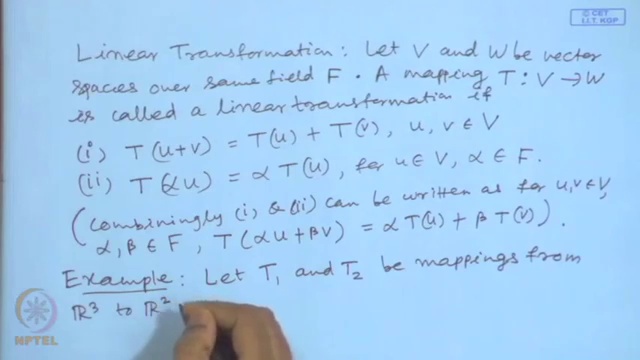 © CET
I.I.T. KGP
Linear Transformation: Let V and W be vector
spaces over same field F. A mapping T: V → W
is called a linear transformation if
(i) T(u+v) = T(u) + T(v), u, v ∈ V
(ii) T(αu) = α T(u), for u ∈ V, α ∈ F.
(Combiningly (i) & (ii) can be written as for u, v ∈ V,
α, β ∈ F, T(αu + βv) = α T(u) + β T(v)).
Example: Let T₁ and T₂ be mappings from
ℝ³ to ℝ²
NPTEL